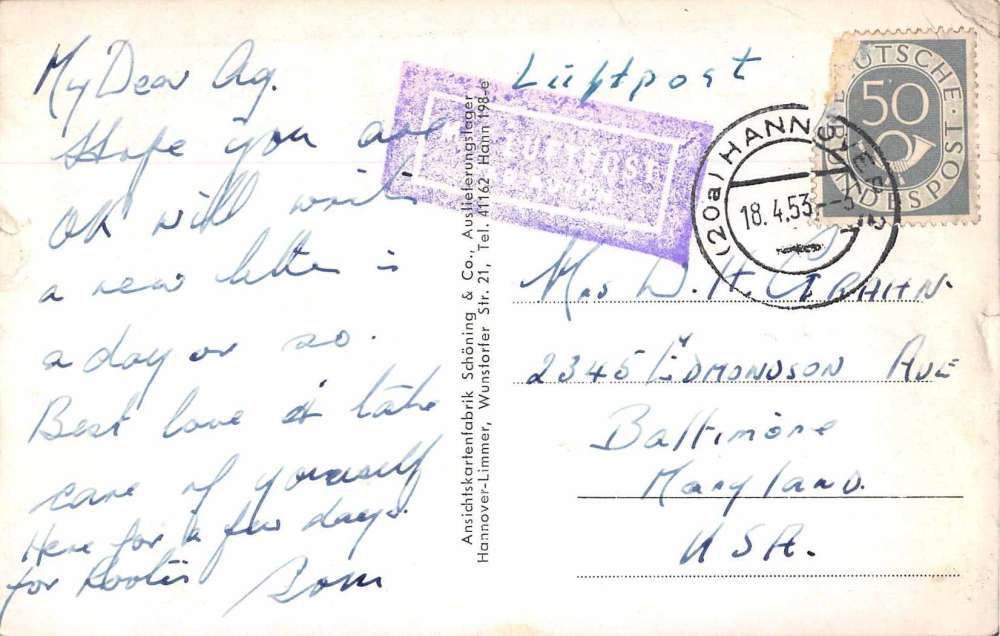 My Dear Ag.
Hope you are
OK will write
a new letter in
a day or so.
Best love & take
care of yourself
Here for a few days.
for Rootes
Ansichtskartenfabrik Schöning & Co., Auslieferungslager
Hannover-Limmer, Wunstorfer Str. 21, Tel. 41162 Hann 198-e
Luftpost
LUFTPOST
(20a) HANNOVER 2
18.4.53
DEUTSCHE
BUNDESPOST
50
Mrs D. H. GRAHN.
2345 EDMONDSON AVE
Baltimore
Maryland.
USA.